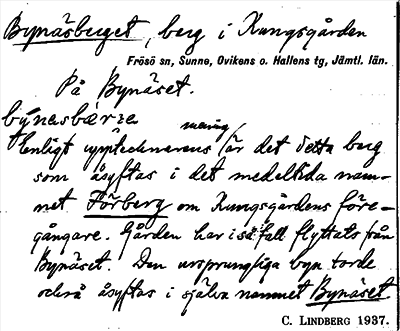 Bynäsberget, berg i Kungsgården
Frösö sn, Sunne, Ovikens o. Hallens tg, Jämtl. län.
På Bynäset.
býnesbærre
mening
Enligt upptecknarens är det detta berg
som åsyftas i det medeltida nam-
net Förberg om Kungsgårdens före-
gångare. Gården har i så fall flyttats från
Bynäset. Den ursprungliga byn torde
också åsyftas i själva namnet Bynäset
C. LINDBERG 1937.